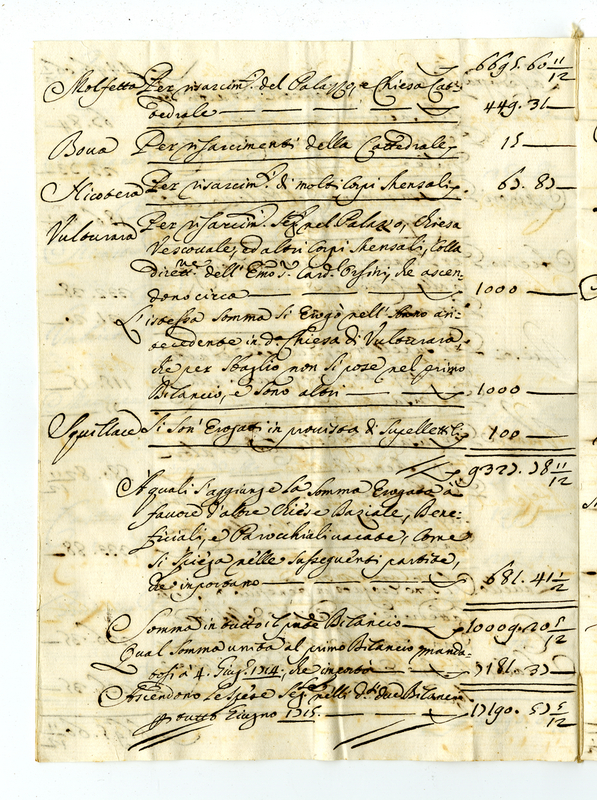 6695. 60 11/12
Molfetta Per risarcim.ti del Palazzo, e Chiesa Cat-
tedrale 449. 31
Boua Per risarcimenti della Cattedrale 15
Nicotera Per risarcim.ti di molti corpi Mensali
Vulturara Per risarcim.ti nel Palazzo, Chiesa
Vescouale, ed altri corpi Mensali, colla
dirett.ne dell' Em.o S.r Card. Orsini, che ascen-
dono circa 1000
L'istessa somma si erogò nell' Anno an-
tecedente in d.a Chiesa di Vulturara,
che per sbaglio non si pose nel primo
Bilancio, e sono altri 1000
Squillace Si son' erogati in prouista di Supellettili 100
9327. 78 11/12
A quali s'aggiunge la somma erogata à
fauore d'altre Chiese Baziale, Bene-
ficiali, e Parocchiali uacate, come
si spiega nelle susseguenti partite,
che inportano 681. 41 1/2
Somma in tutto il pnte Bilancio 10009. 20 5/12
Qual somma unita al primo Bilancio manda-
tosi à 4. Giug.o 1714, che inporta 7181. 37
Ascendono le spese nelli d.i due Bilanci
p tutto Giugno 1715. 17190. 57 5/12